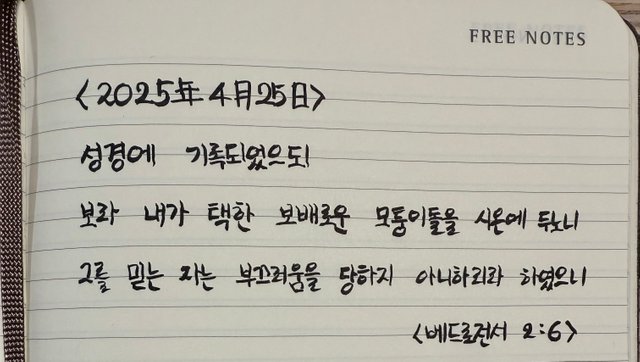 FREE NOTES
<2025年 4月 25日>
성경에 기록되었으되
보라 내가 택한 보배로운 모퉁이돌을 시온에 두노니
그를 믿는 자는 부끄러움을 당하지 아니하리라 하였으니
<베드로전서 2:6>